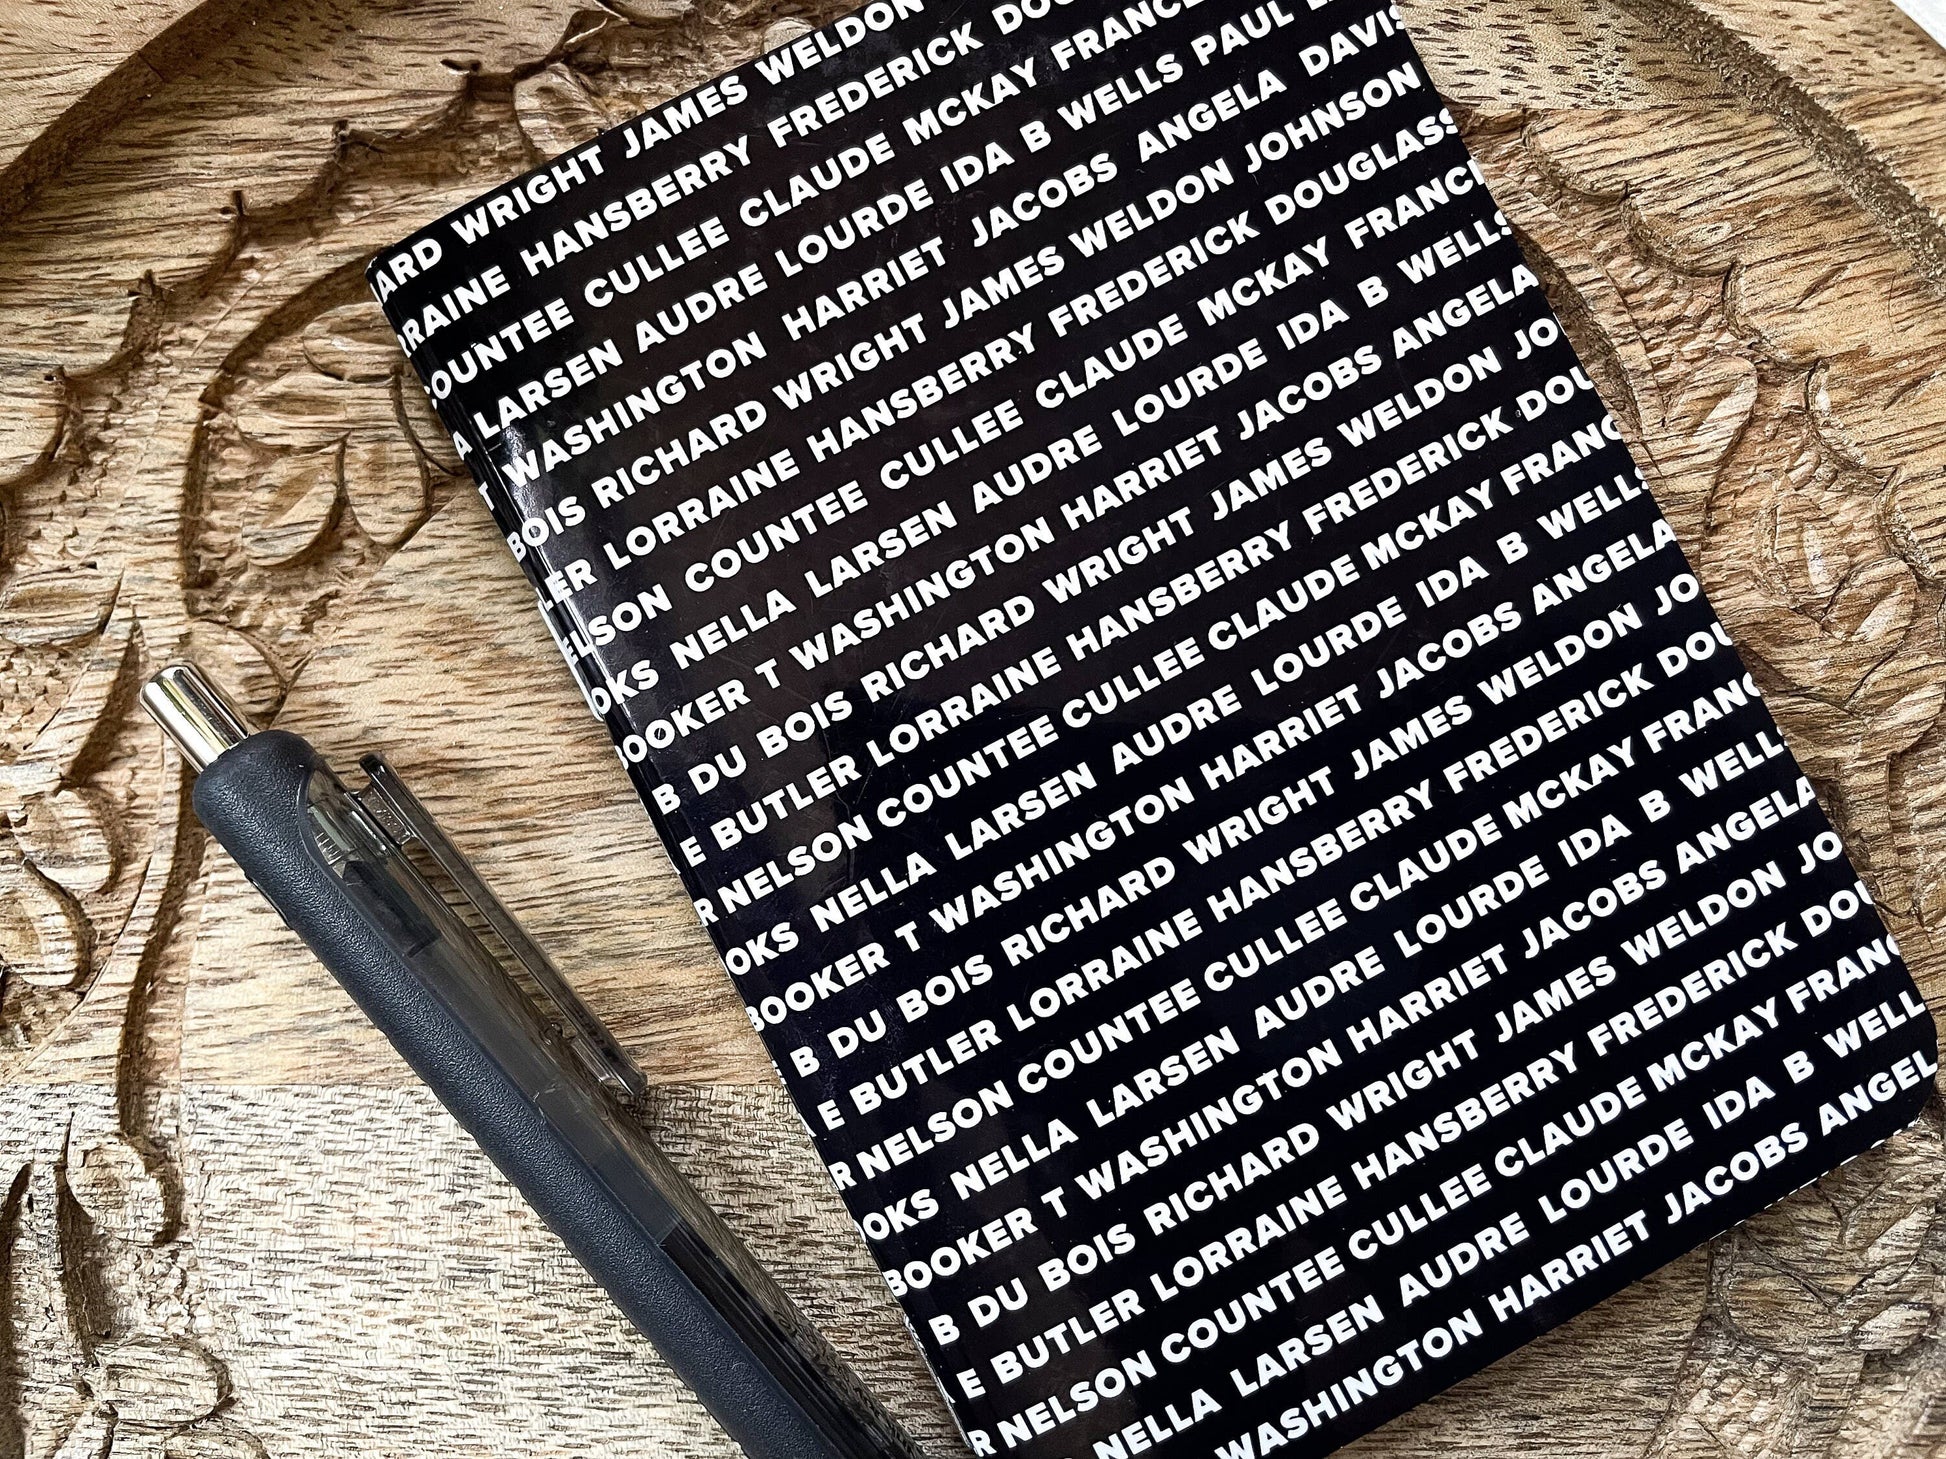 WRIGHT JAMES WELDON
HANSBERRY FREDERICK
COUNTEE CULLEE CLAUDE MCKAY
LARSEN AUDRE LOURDE IDA B WELLS PAUL
T WASHINGTON HARRIET JACOBS ANGELA DAVIS
BOIS RICHARD WRIGHT JAMES WELDON JOHNSON
LER LORRAINE HANSBERRY FREDERICK DOUGLASS
ELSON COUNTEE CULLEE CLAUDE MCKAY FRANCE
OKS NELLA LARSEN AUDRE LOURDE IDA B WELLS
BOOKER T WASHINGTON HARRIET JACOBS ANGELA
B DU BOIS RICHARD WRIGHT JAMES WELDON JO
E BUTLER LORRAINE HANSBERRY FREDERICK DOU
R NELSON COUNTEE CULLEE CLAUDE MCKAY FRANC
OKS NELLA LARSEN AUDRE LOURDE IDA B WELLS
BOOKER T WASHINGTON HARRIET JACOBS ANGELA
B DU BOIS RICHARD WRIGHT JAMES WELDON JO
E BUTLER LORRAINE HANSBERRY FREDERICK DOU
R NELSON COUNTEE CULLEE CLAUDE MCKAY FRANC
OKS NELLA LARSEN AUDRE LOURDE IDA B WELL
BOOKER T WASHINGTON HARRIET JACOBS ANGELA
B DU BOIS RICHARD WRIGHT JAMES WELDON JO
E BUTLER LORRAINE HANSBERRY FREDERICK DOU
R NELSON COUNTEE CULLEE CLAUDE MCKAY FRANC
NELLA LARSEN AUDRE LOURDE IDA B WELL
WASHINGTON HARRIET JACOBS ANGEL